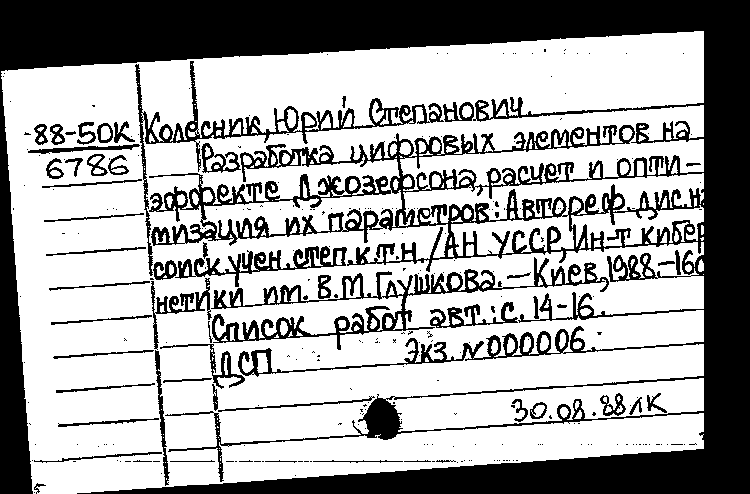 88-50К Колесник, Юрий Степанович.
6786 Разработка цифровых элементов на
эффекте Джозефсона, расчет и опти-
мизация их параметров: Автореф. дис. на
соиск. учен. степ. к.т.н. / АН УССР, Ин-т кибер
нетики им. В.М. Глушкова. — Киев, 1988. -16с
Список работ авт.: с. 14-16.
ДСП. Экз. N000006.
30.08.88 ЛК